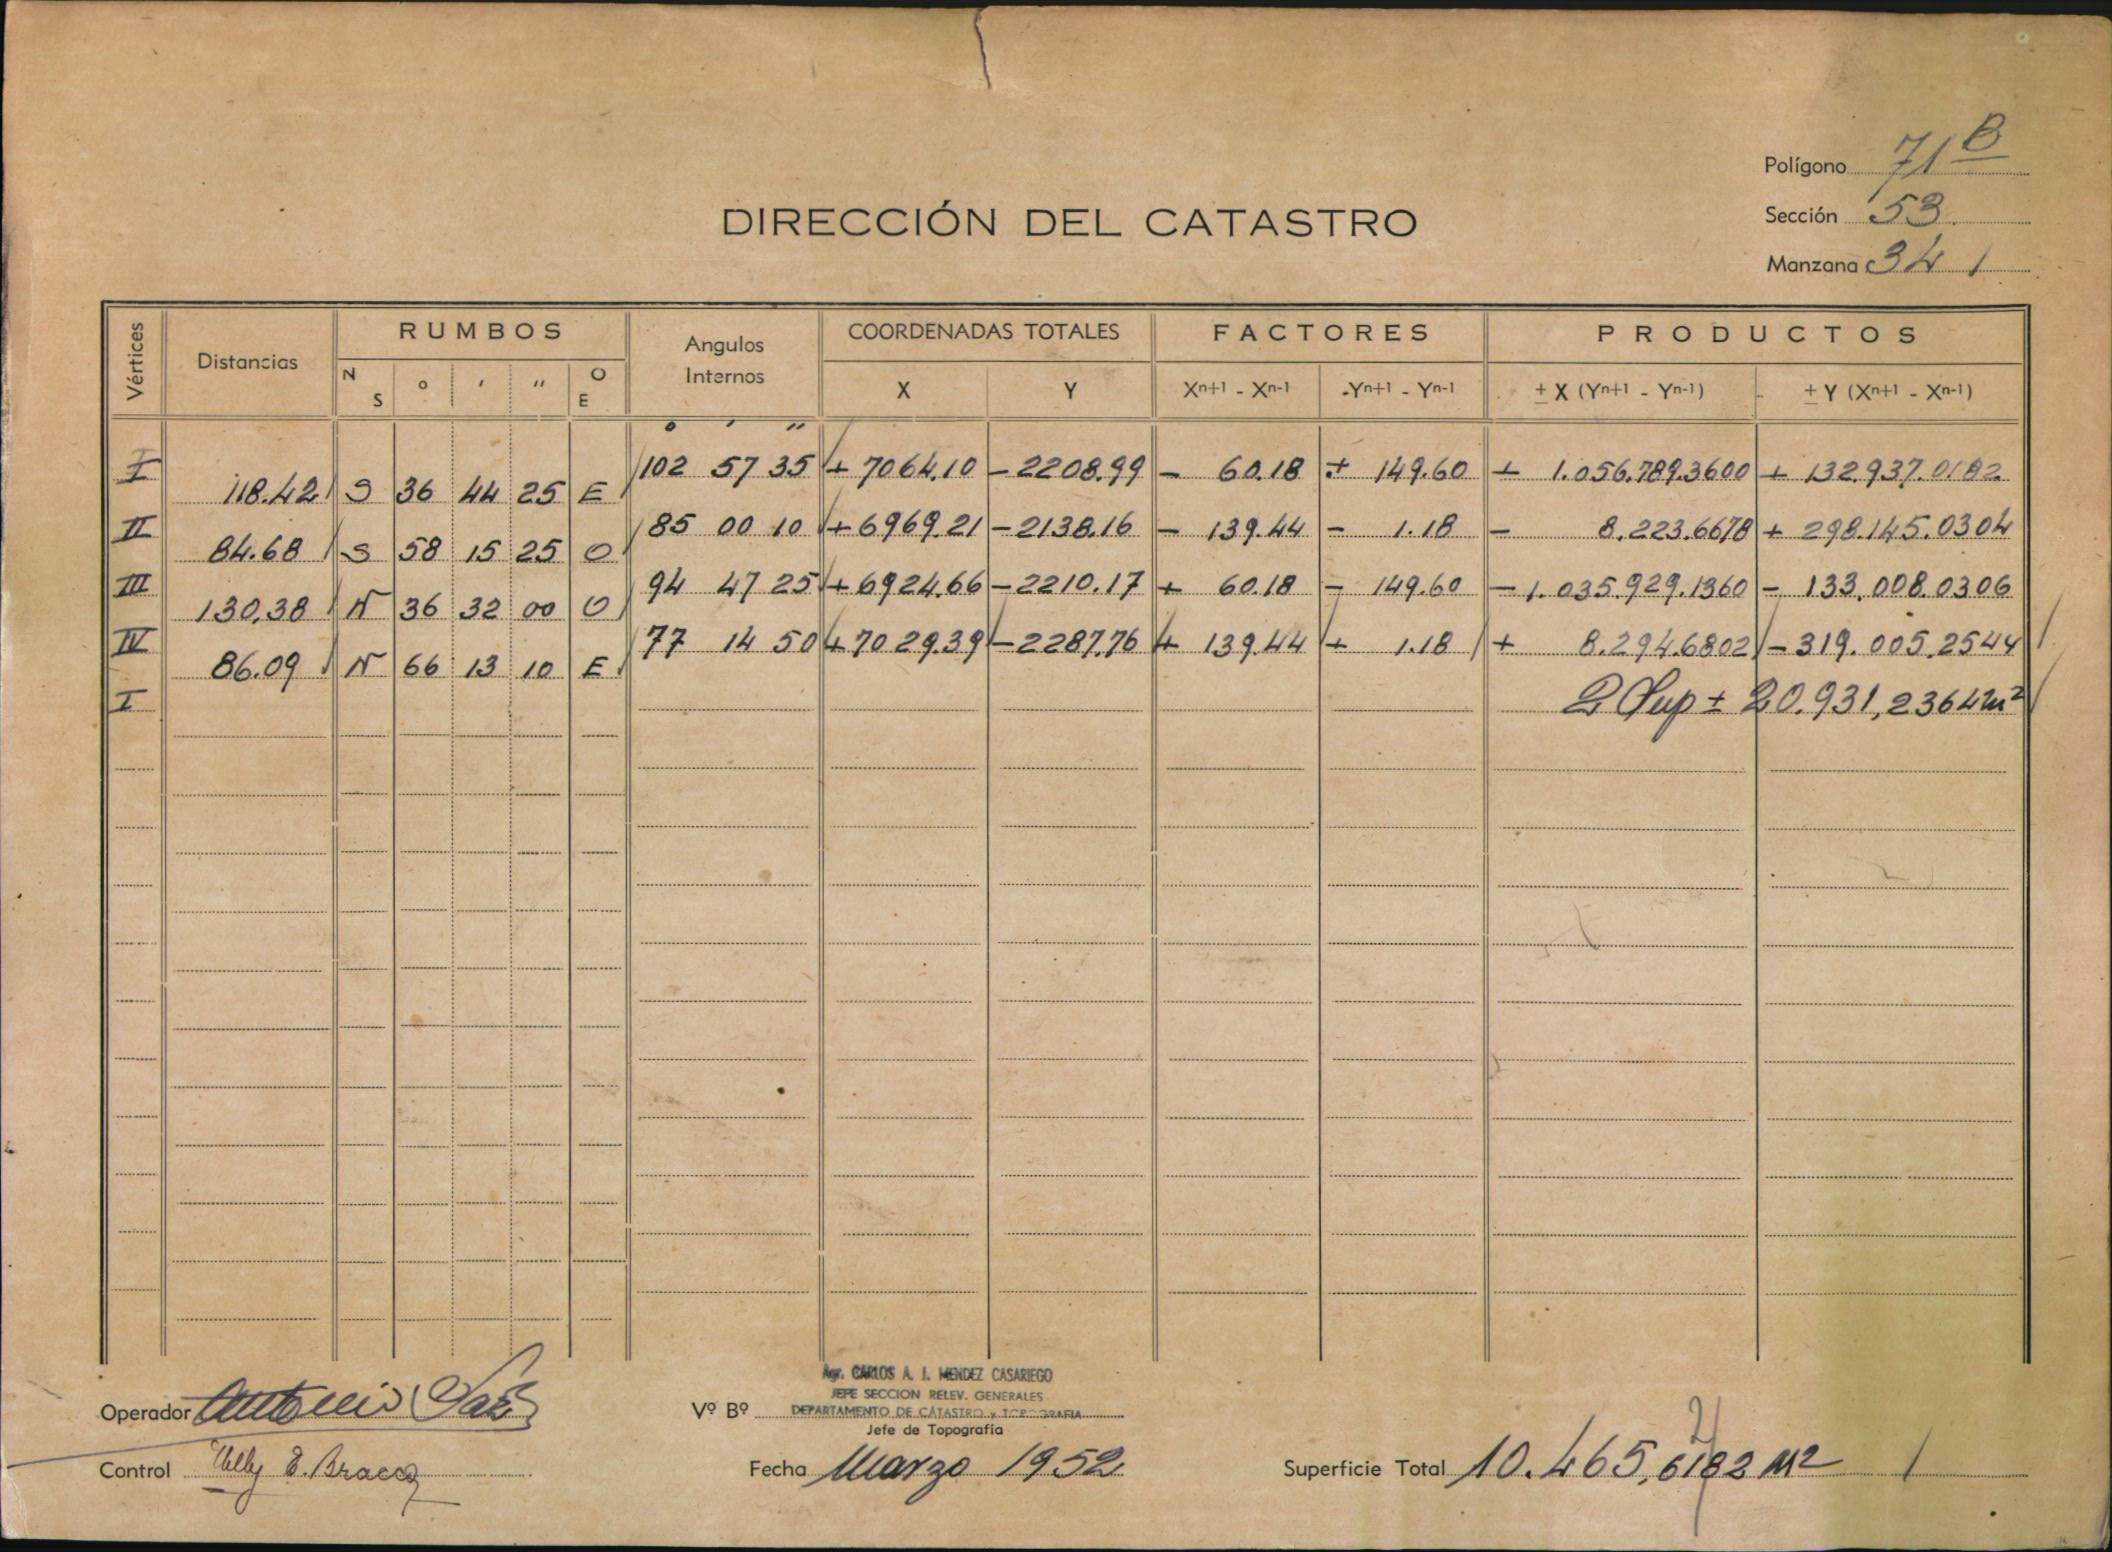 Polígono 71 B
Sección 53
Manzana 34
DIRECCIÓN DEL CATASTRO
Vértices
Distancias
RUMBOS
N S ° ' " O E
Angulos Internos
COORDENADAS TOTALES
X Y
FACTORES
Xn+1 - Xn-1 -Yn+1 - Yn-1
PRODUCTOS
± X (Yn+1 - Yn-1) ± Y (Xn+1 - Xn-1)
° ' "
I 102 57 35 + 7064.10 - 2208.99 - 60.18 + 149.60 + 1.056.789.3600 + 132.937.0182
118.42 S 36 44 25 E
II 85 00 10 + 6969.21 - 2138.16 - 139.44 - 1.18 - 8.223.6678 + 298.145.0304
84.68 S 58 15 25 O
III 94 47 25 + 6924.66 - 2210.17 + 60.18 - 149.60 - 1.035.929.1360 - 133.008.0306
130.38 N 36 32 00 O
IV 77 14 50 + 7029.39 - 2287.76 + 139.44 + 1.18 + 8.294.6802 - 319.005.2544
86.09 N 66 13 10 E
I 2 Sup ± 20.931,2364 m²
Operador Antonio
Control Nelly E. Bracco
Vº Bº
Agr. CARLOS A. J. MENDEZ CASARIEGO
JEFE SECCION RELEV. GENERALES
DEPARTAMENTO DE CATASTRO y TOPOGRAFIA
Jefe de Topografía
Fecha Marzo 1952
Superficie Total 10.465,6182 M²